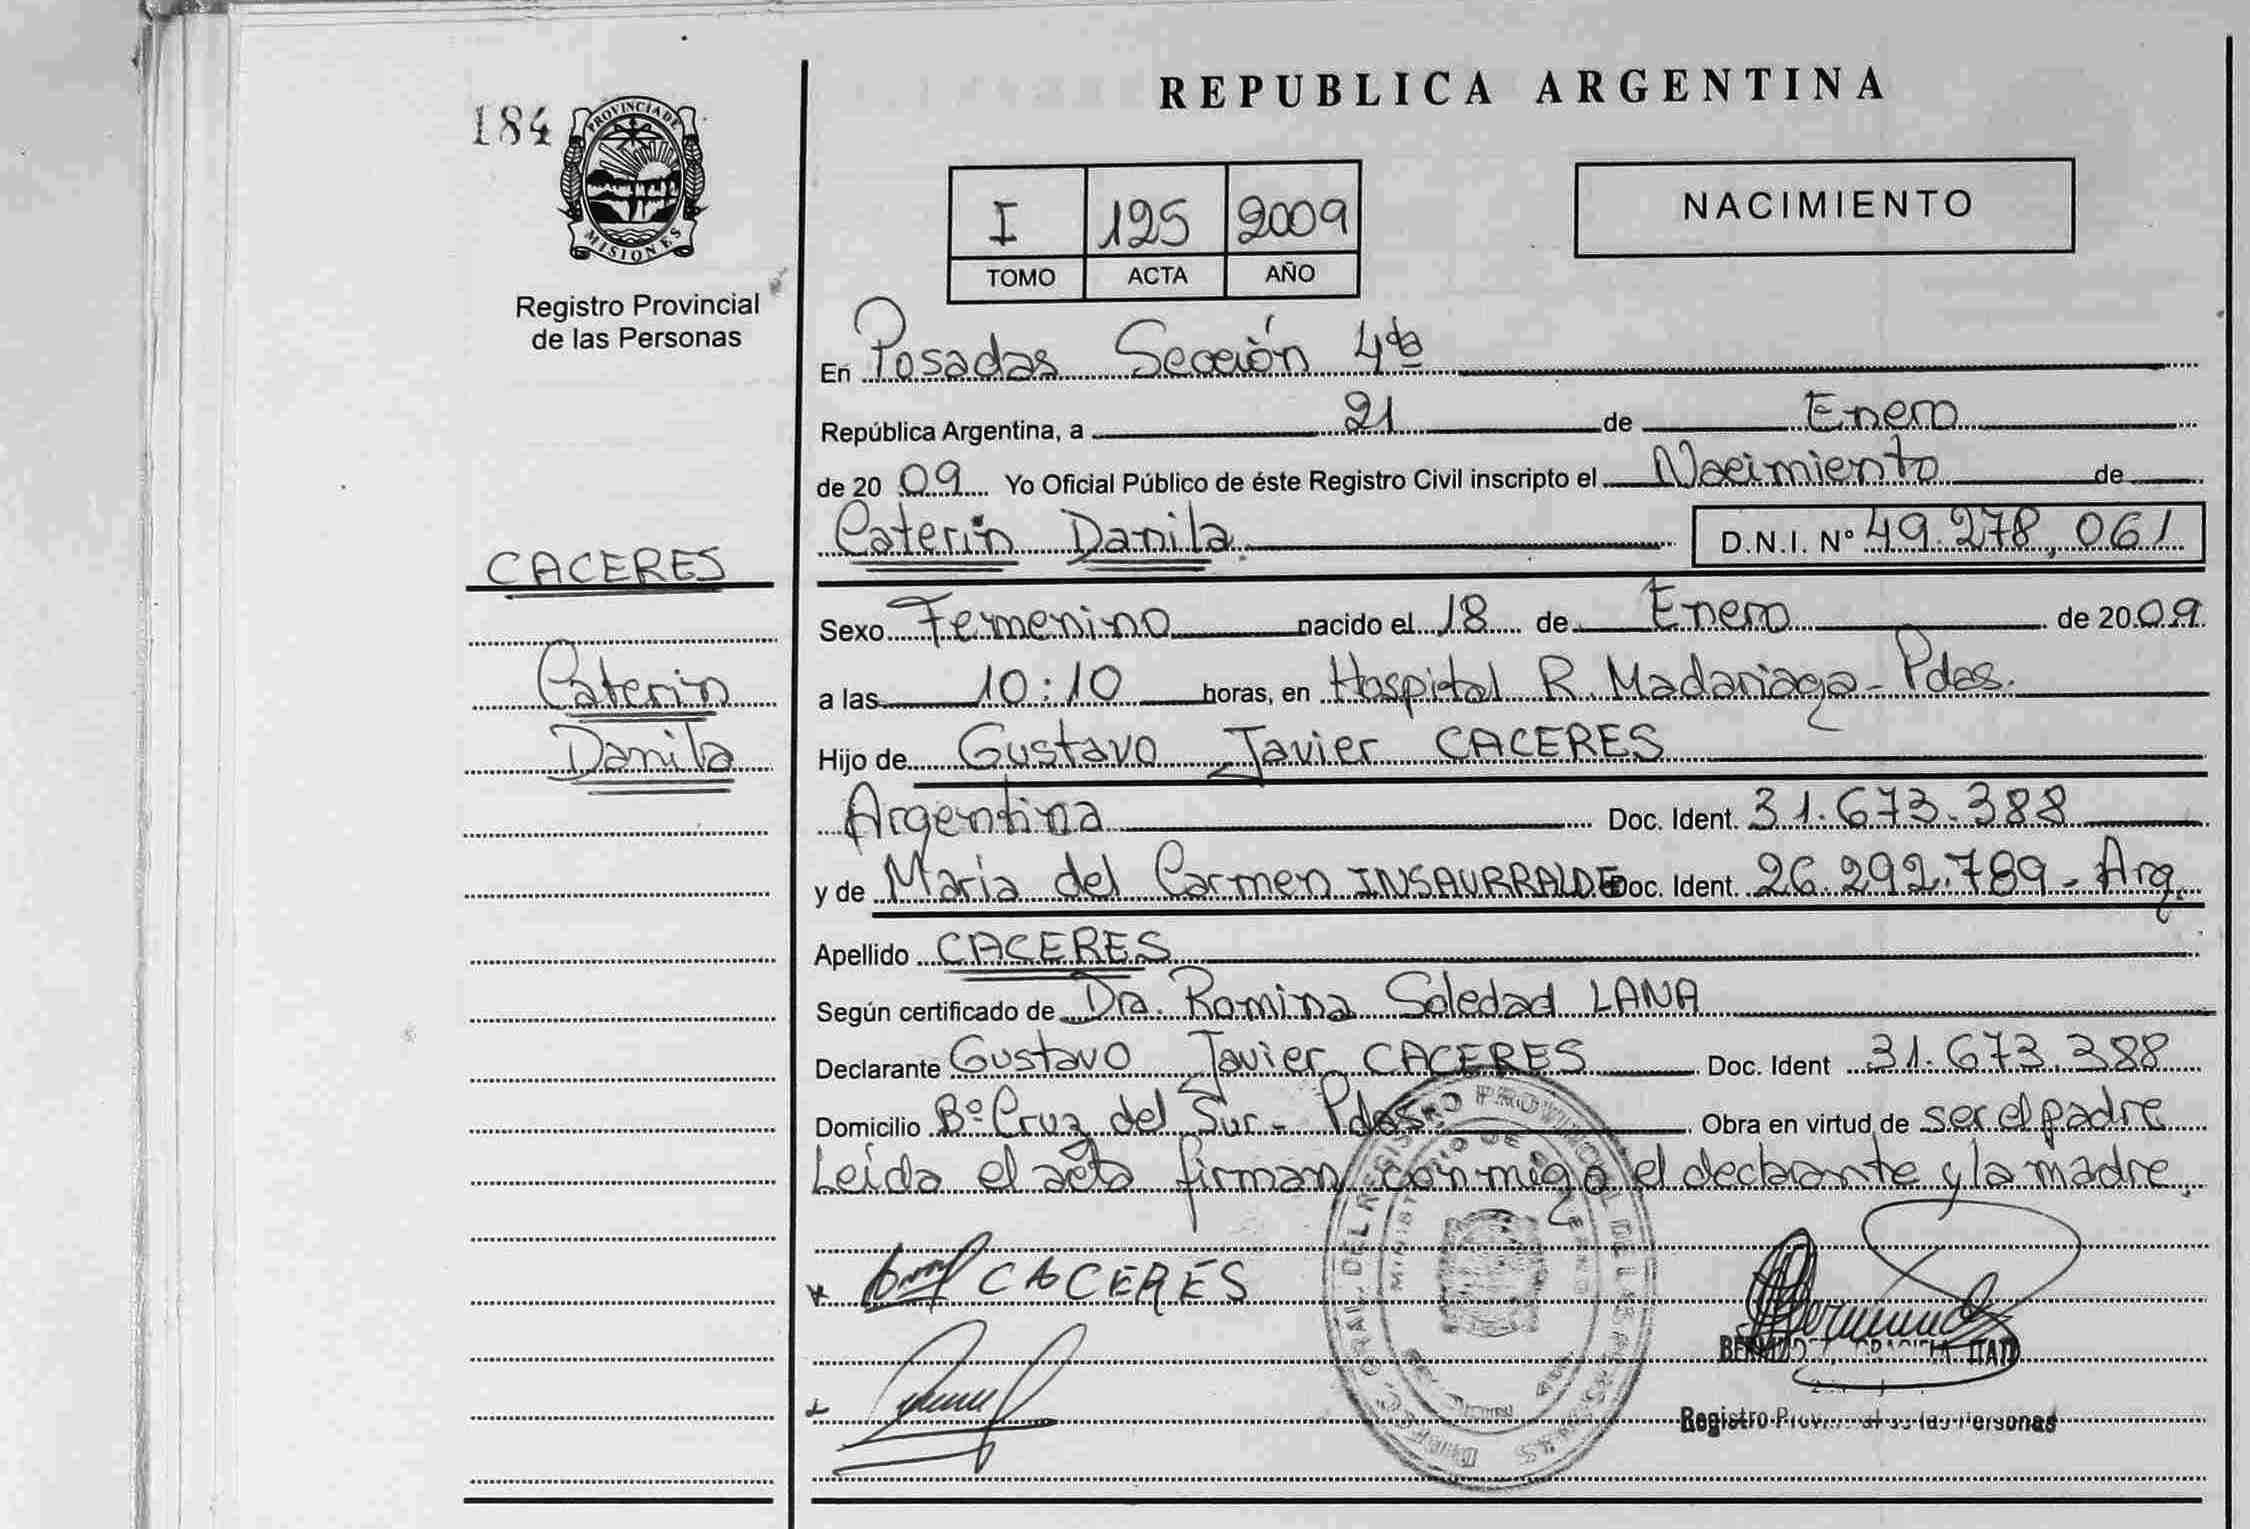 184
PROVINCIA DE
MISIONES
Registro Provincial
de las Personas
CACERES
Caterin
Danila
REPUBLICA ARGENTINA
I 125 2009
TOMO ACTA AÑO
NACIMIENTO
En Posadas Sección 4ta
República Argentina, a 21 de Enero
de 2009 Yo Oficial Público de éste Registro Civil inscripto el Nacimiento de
Caterin Danila D.N.I. Nº 49.278,061
Sexo Femenino nacido el 18 de Enero de 2009
a las 10:10 horas, en Hospital R. Madariaga - Pdas.
Hijo de Gustavo Javier CACERES
Argentina Doc. Ident. 31.673.388
y de Maria del Carmen INSAURRALDE Doc. Ident. 26.292.789 - Arg.
Apellido CACERES
Según certificado de Dra. Romina Soledad LANA
Declarante Gustavo Javier CACERES Doc. Ident 31.673.388
Domicilio Bº Cruz del Sur - Pdas. Obra en virtud de ser el padre
Leída el acta firman conmigo el declarante y la madre.
CACERES
Registro Provincial de las Personas